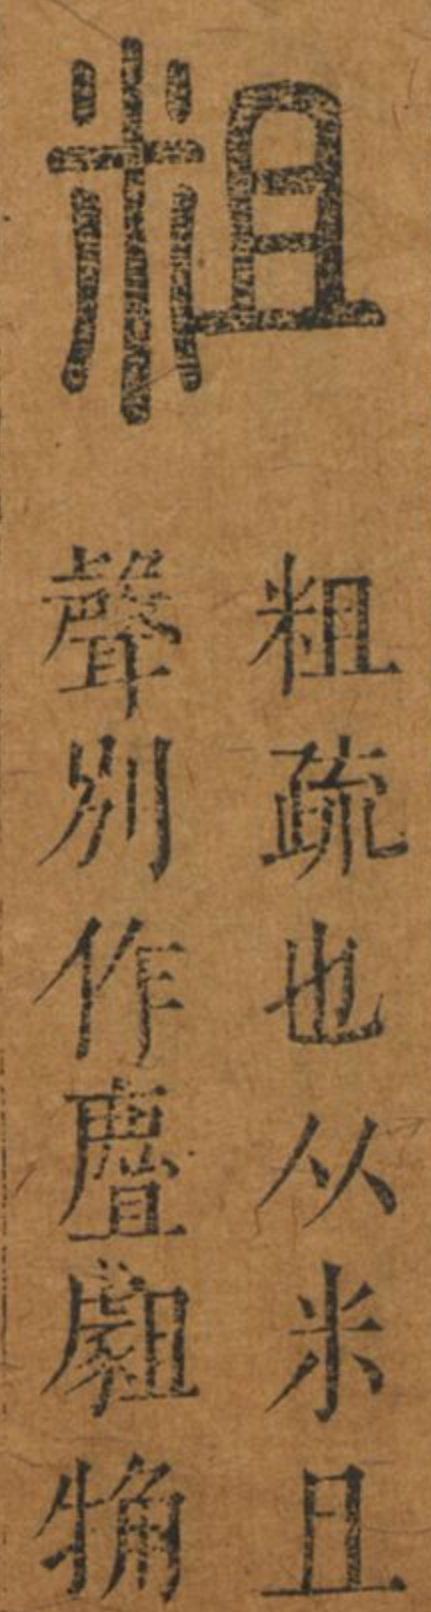 粗
粗疏也从米且
聲別作觕